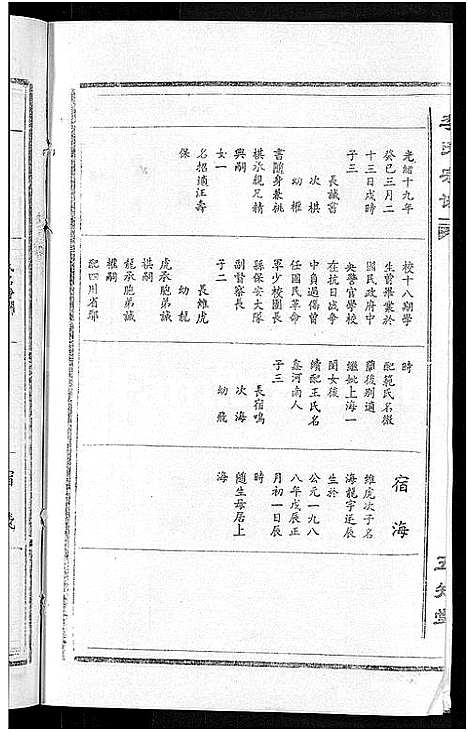 光緒十九年
癸巳三月二
十三日戌時
子三
長誠書
次棋
幼權
書隨身兼祧
棋承親兄精
與嗣
女一
名招適汪壽
保
校十八期學
生曾畢業於
國民政府中
央警官學校
在抗日戰爭
中負過傷曾
任國民革命
軍少校團長
縣保安大隊
副督察長
子二
長維虎
幼龍
虎承胞弟誠
棋嗣
龍承胞弟誠
權嗣
配四川省鄒
時
配範氏名微
蘭後別適
繼妣上海一
閨女後
續配王氏名
鑫河南人
子三
長宿鳴
次海
幼飛
宿海
維虎次子名
海龍字廷辰
生於
公元一九八
八年戊辰正
月初一日辰
時
隨生母居上
海